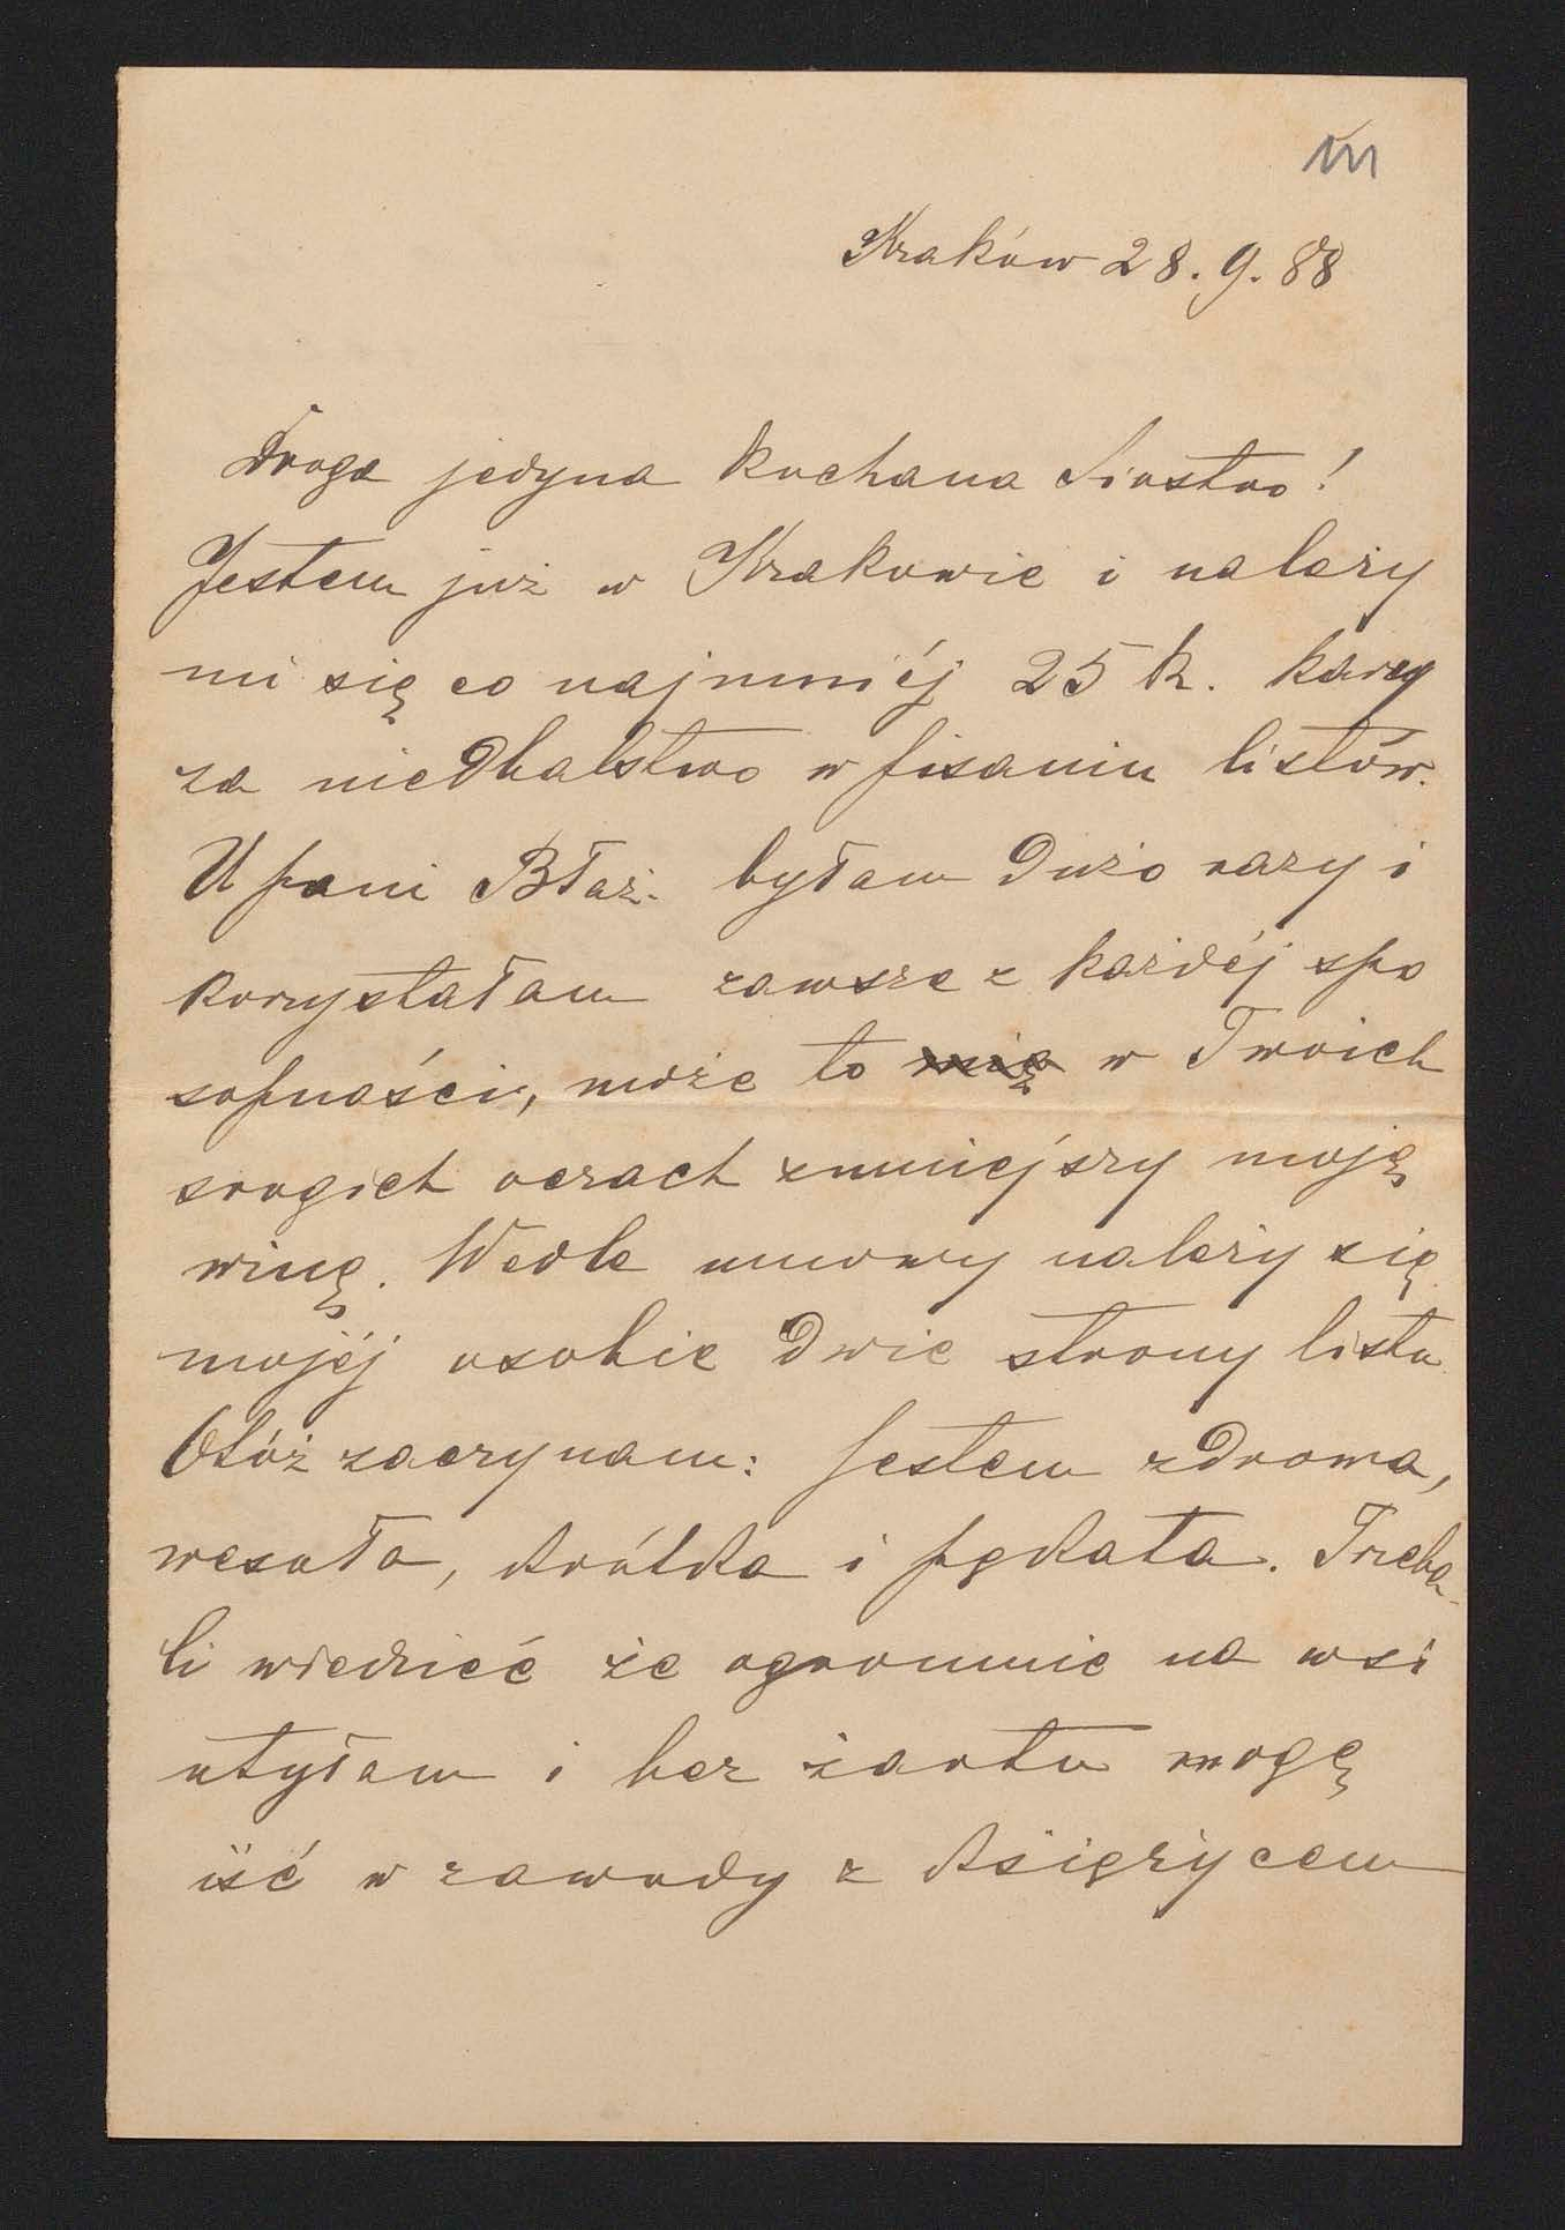 Kraków 28.9.88
Droga jedyna kochana Siostro!
Jestem już w Krakowie i należy
mi się co najmniéj 25 k. kary
za niedbalstwo w pisaniu listów.
U pani Błaż. byłam dużo razy i
korzystałam zawsze z każdéj spo
sobności, może to w Twoich
srogich oczach zmniejszy moję
winę. Wedle umowy należy się
mojéj osobie dwie strony listu
Otóż zaczynam: Jestem zdrowa,
wesoła, krótka i pękata. Trzeba
Ci wiedzieć że ogromnie na wsi
utyłam i bez żartu mogę
iść w zawody z księżycem